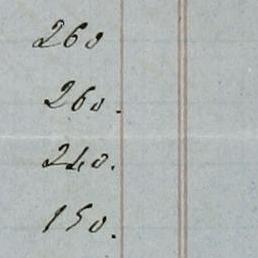 260
260.
240.
150.